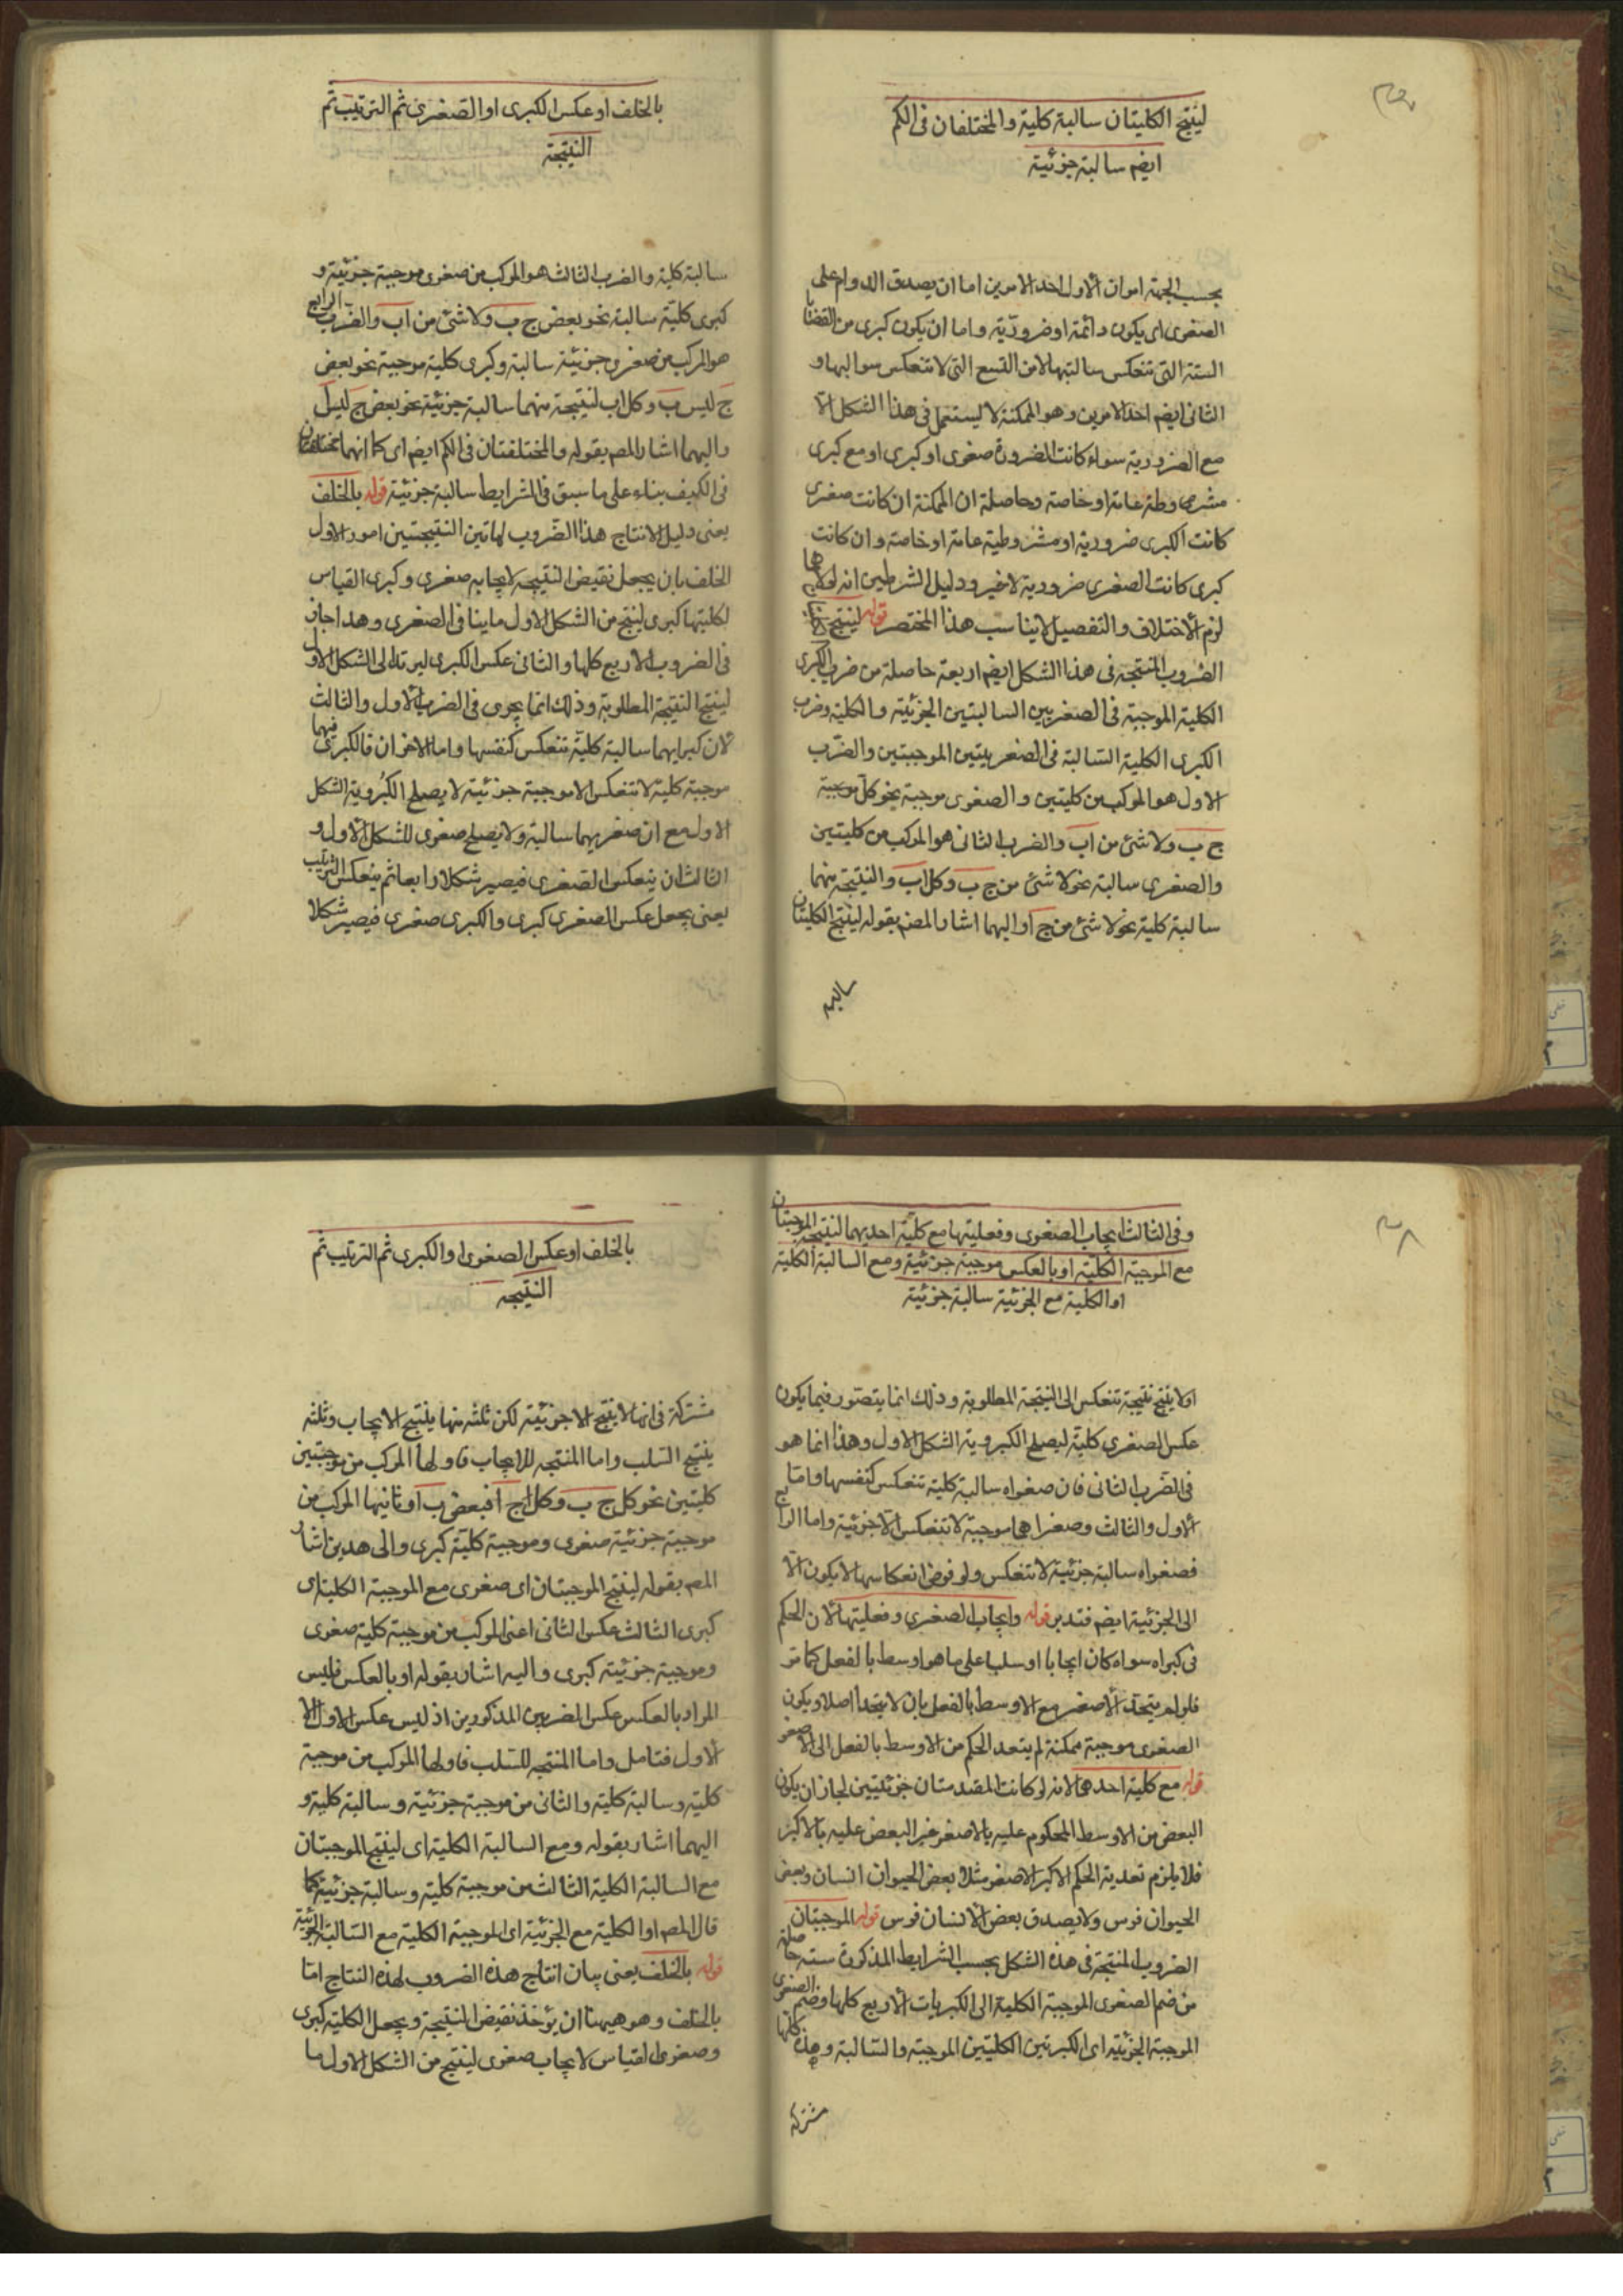 لينتج الكليتان سالبة كلية والمختلفان فى الكم
ايضم سالبة جزئية
بحسب الجهة امران الاول احد الامرين اما ان يصدق الدوام على
الصغرى اى يكون دائمة او ضرورية واما ان يكون كبرى من القضايا
الستة التى تنعكس سالبتها لا من التسع التى لا تنعكس سوالبها و
الثانى ايضم احد الامرين وهو الممكنة لا يستعمل فى هذا الشكل الا
مع الضرورية سواء كانت الضرورة صغرى او كبرى او مع كبرى
مشروطة عامة او خاصة وحاصلة ان الممكنة ان كانت صغرى
كانت الكبرى ضرورية او مشروطية عامة او خاصة وان كانت
كبرى كانت الصغرى ضرورية لا غير ودليل الشرطين انه لولاهما
لزم الاختلاف والتفصيل لا يناسب هذا المختصر قوله لينتج
الضروب المنتجة فى هذا الشكل ايضم اربعة حاصلة من ضرب الكبرى
الكلية الموجبة فى الصغريين السالبتين الجزئية والكلية وضرب
الكبرى الكلية السالبة فى الصغريتين الموجبتين والضرب
الاول هو المركب من كليتين والصغرى موجبة نحو كل موجبة
ج ب ولا شئ من اب والضرب الثانى هو المركب من كليتين
والصغرى سالبة نحو لا شئ من ج ب وكل اب والنتيجة منهما
سالبة كلية نحو لا شئ من ج ا واليهما اشار المصم بقوله لينتج الكليتان
سالبة
بالخلف او عكس الكبرى او الصغرى ثم الترتيب ثم
النتيجة
سالبة كلية والضرب الثالث هو المركب من صغرى موجبة جزئية و
كبرى كلية سالبة نحو بعض ج ب ولا شئ من اب والضرب الرابع
هو المركب من صغرى جزئية سالبة وكبرى كلية موجبة نحو بعض
ج ليس ب وكل اب لنتيجة منهما سالبة جزئية نحو بعض ج ليس ا
واليهما اشار المصم بقوله والمختلفتان فى الكم ايضم اى كما انهما مختلفتان
فى الكيف بناء على ما سبق فى الشرايط سالبة جزئية قوله بالخلف
يعنى دليل الانتاج هذا الضروب لهاتين النتيجتين امور الاول
الخلف بان يجعل نقيض النتيجة لايجابه صغرى وكبرى القياس
لكليتها كبرى لينتج من الشكل الاول ما ينافى الصغرى وهذا جار
فى الضروب الاربع كلها والثانى عكس الكبرى ليرتد الى الشكل الاول
لينتج النتيجة المطلوبة وذلك انما يجرى فى الضرب الاول والثالث
لان كبريهما سالبة كلية تنعكس كنفسها واما الاخران فالكبرى فيهما
موجبة كلية لا تنعكس الا موجبة جزئية لا يصلح الكبروية الشكل
الاول مع ان صغريهما سالبة ولا يصلح صغرى للشكل الاول و
الثالث ان ينعكس الصغرى فيصير شكلا رابعا ثم ينعكس الترتيب
يعنى يجعل عكس الصغرى كبرى والكبرى صغرى فيصير شكلا
وفى الثالث ايجاب الصغرى وفعليتها مع كلية احديهما لنتيجة الموجبتان
مع الموجبة الكلية او بالعكس موجبة جزئية ومع السالبة الكلية
او الكلية مع الجزئية سالبة جزئية
اولا ينتج نتيجة تنعكس الى النتيجة المطلوبة وذلك انما يتصور فيما يكون
عكس الصغرى كلية ليصلح الكبروية الشكل الاول وهذا انما هو
فى الضرب الثانى فان صغراه سالبة كلية تنعكس كنفسها واما
الاول والثالث وصغراهما موجبة لا تنعكس الا جزئية واما الرابع
فصغراه سالبة جزئية لا تنعكس ولو فرض انعكاسها لا يكون الا
الى الجزئية ايضم فتدبر قوله وايجاب الصغرى وفعليتها لان الحكم
فى كبراه سواء كان ايجابا او سلبا على ما هو اوسط بالفعل كما مر
فلو لم يتحد الاصغر مع الاوسط بالفعل بان لا يتحدا اصلا ويكون
الصغرى موجبة ممكنة لم يتعد الحكم من الاوسط بالفعل الى الاصغر
قوله مع كلية احدهما لانه لو كانت المقدمتان جزئيتين لجاز ان يكون
البعض من الاوسط المحكوم عليه بالاصغر غير البعض عليه بالاكبر
فلا يلزم تعدية الحكم الاكبر الاصغر مثلا بعض الحيوان انسان وبعض
الحيوان فرس ولا يصدق بعض الانسان فرس قوله الموجبتان
الضروب المنتجة فى هذه الشكل بحسب الشرايط المذكورة ستة حاصلة
من ضم الصغرى الموجبة الكلية الى الكبريات الاربع كلها وضم الصغرى
الموجبة الجزئية اى الكبرتين الكليتين الموجبة والسالبة وهذه كلها
مشتركة
بالخلف او عكس الصغرى او الكبرى ثم الترتيب ثم
النتيجة
مشتركة فى انها لا ينتج الا جزئية لكن ثلثة منها ينتج الايجاب وثلثة
ينتج السلب واما المنتجة للايجاب فاولها المركب من موجبتين
كليتين نحو كل ج ب وكل ج ا فبعض ب ا وثانيها المركب من
موجبة جزئية صغرى وموجبة كلية كبرى والى هذين اشار
المصم بقوله لينتج الموجبتان اى صغرى مع الموجبة الكلية اى
كبرى الثالث عكس الثانى اعنى المركب من موجبة كلية صغرى
وموجبة جزئية كبرى واليه اشار بقوله او بالعكس فليس
المراد بالعكس عكس الضربين المذكورين اذ ليس عكس الاول الا
الاول فتامل واما المنتجة للسلب فاولها المركب من موجبة
كلية وسالبة كلية والثانى من موجبة جزئية وسالبة كلية و
اليهما اشار بقوله ومع السالبة الكلية اى لينتج الموجبتان
مع السالبة الكلية الثالث من موجبة كلية وسالبة جزئية كما
قال المصم او الكلية مع الجزئية اى الموجبة الكلية مع السالبة الجزئية
قوله بالخلف يعنى بيان انتاج هذه الضروب لهذه النتاج اما
بالخلف وهو هيهنا ان يؤخذ نقيض النتيجة ويجعل الكلية كبرى
وصغرى القياس لايجاب صغرى لينتج من الشكل الاول ما